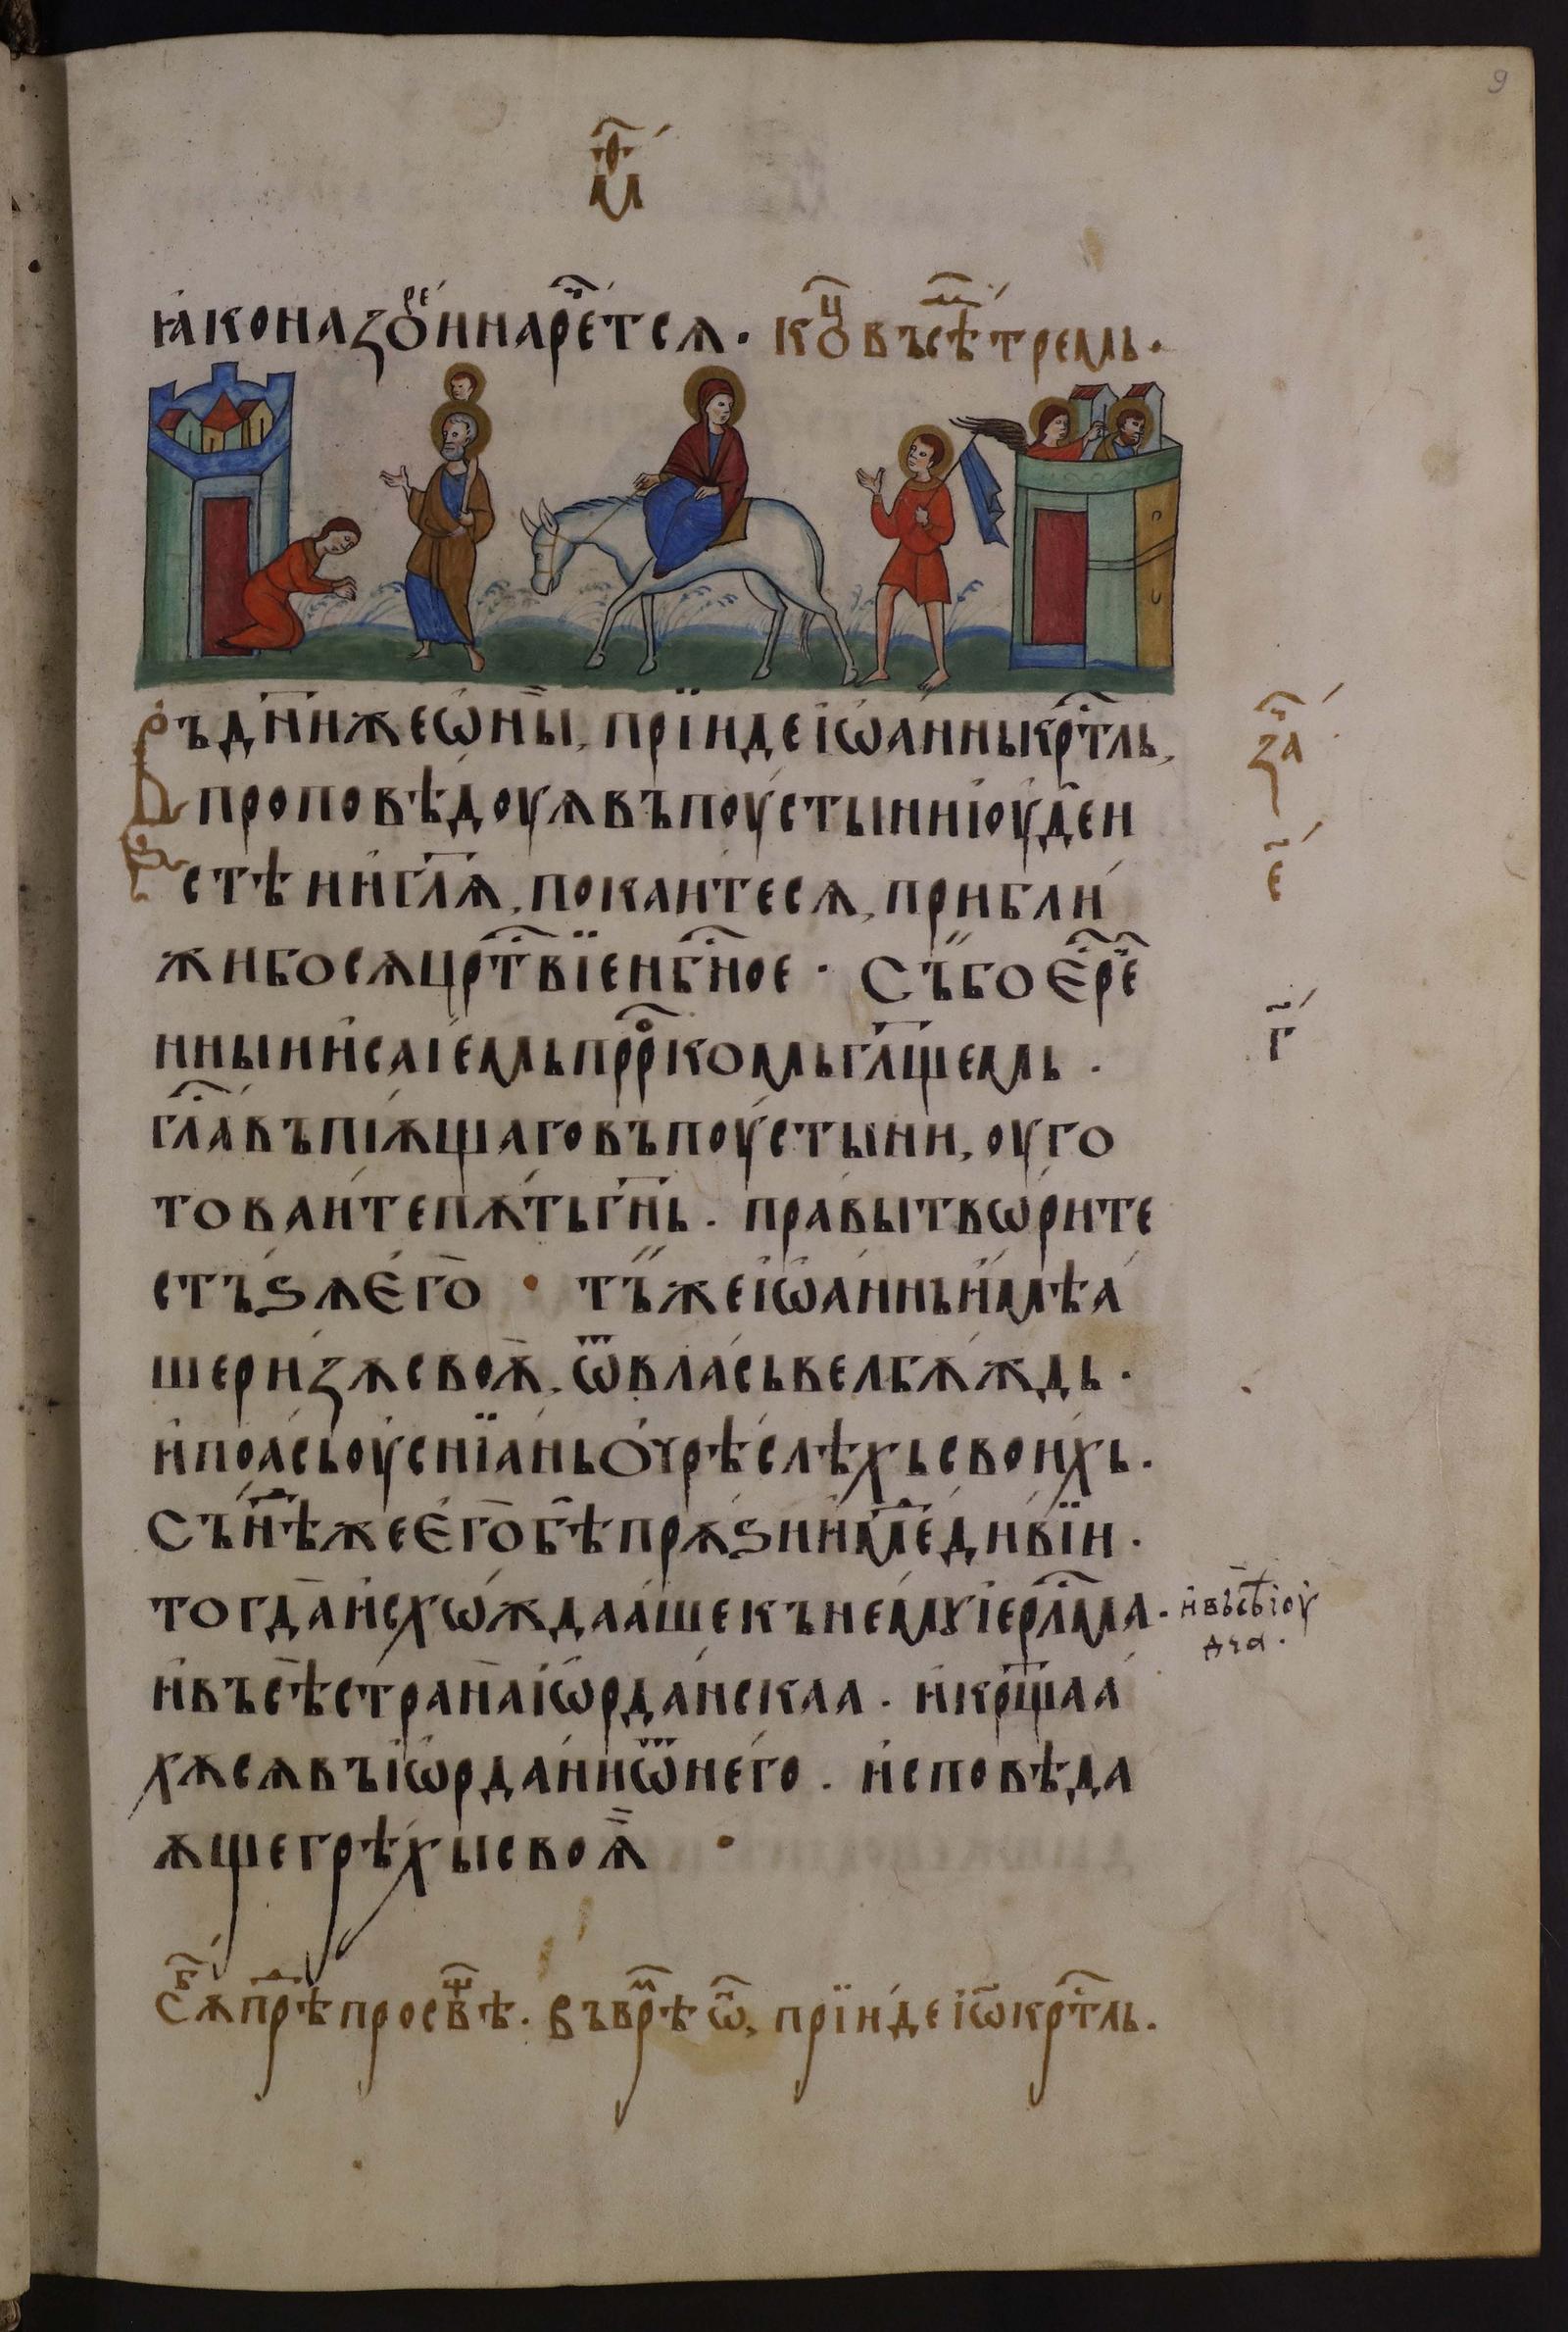 9
мⷴ҇
ꙗ҆конаꙁѡⷬ҇е҆ннаре҆ⷱ҇тсѧ. коⷰ҇въсѣⷨ҇тремь.
Въдн҃ижеѡ҆ны, прїидеі҆ѡа҆нныкрⷭ҇тль,
проповѣдоуѧвъпоу́стыниїоу҆ден
стѣии҆гл҃ѧ, покаи҆тесѧ, прибли́
жибосѧцрⷭ҇твїенбⷭ҇ное · Съ́боЄ҆рє
нныии҆саїемьпррⷪ҇комьгл҃щемь .
глⷭ҇авъпїѫщаговъпоу́стыни, оуго
товаитепѫтьгн҃ь . правытвѡрите
стъѕѧЄ҆го · тъ́жеі҆ѡа҆ннъи҆мѣа
шеризѫсвоѫ, ѿвласьвелбѫждь .
и҆поасьоу҆снїа҆ньОурѣслѣхьсвоихь .
Съ́нⷣѣжеЄ҆гобѣпрѫѕиим҆едивїи .
тогдаи҆схѡ́ждаашекънемꙋі҆ерⷭ҇лма .
и҆въсѣі҆оу
деа .
и҆въсѣстранаі҆ѡрда́нскаа . и҆крⷭ҇щаа
хѫсѧвъі҆ѡрда́ниѿнего . и҆сповѣда
ѫщегрѣхысвоѫ ·
за҃
е҃
г҃
Сѫⷠ҇прⷣѣпросвⷳ҇ѣ . Въврⷨ҇ѣѡ҆н, прїи́деі҆ѡкрⷭ҇тль .